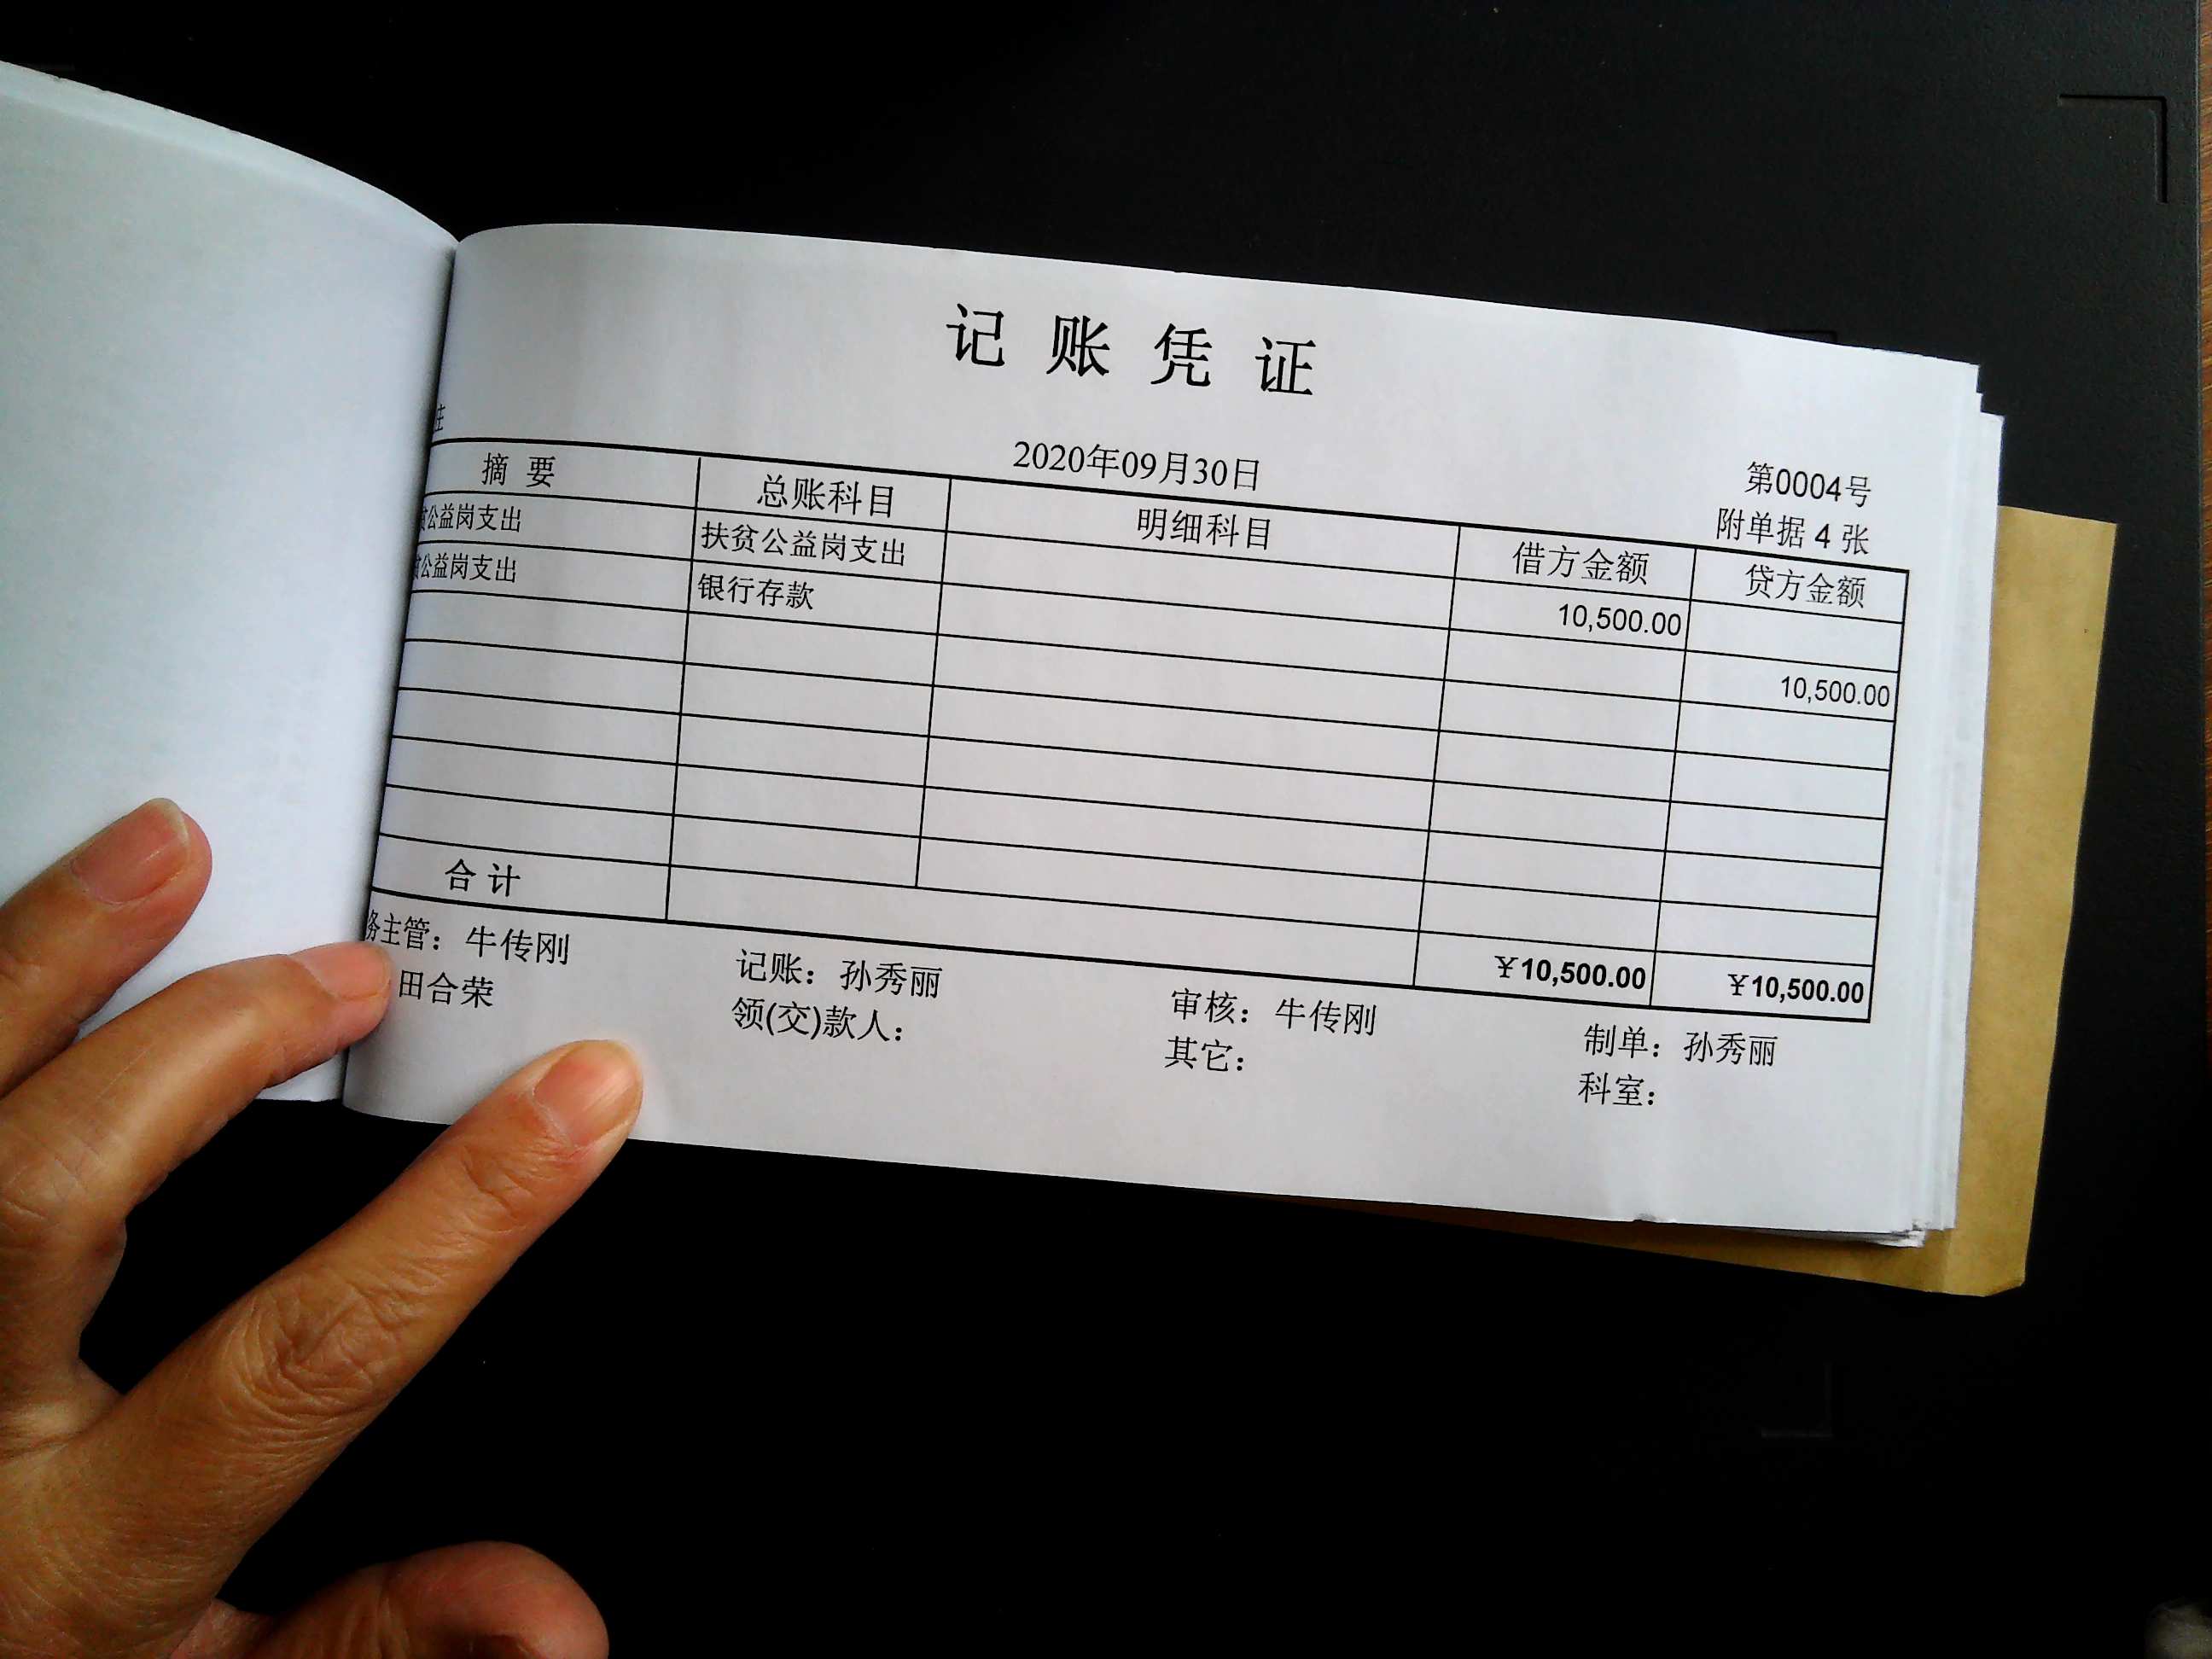 记账凭证
庄
2020年09月30日
第0004号
附单据 4 张
摘 要 总账科目 明细科目 借方金额 贷方金额
公益岗支出 扶贫公益岗支出 10,500.00
公益岗支出 银行存款 10,500.00
合 计 ¥10,500.00 ¥10,500.00
务主管：牛传刚 记账：孙秀丽 审核：牛传刚 制单：孙秀丽
田合荣 领(交)款人： 其它： 科室：